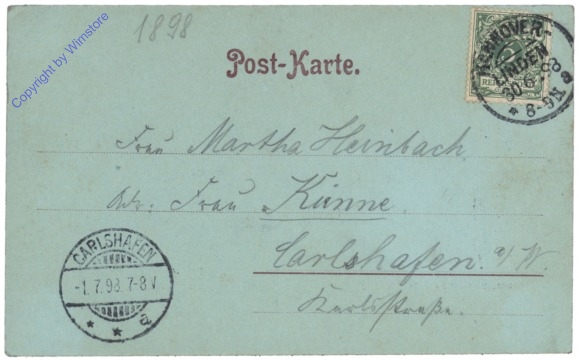 1898
Copyright by Wimstore
Post-Karte.
HANNOVER-
LINDEN
30.6.98
8-9N a
Frau Martha Heinbach
Adr. Frau Künne.
Carlshafen a/W.
Karlsstraße.
CARLSHAFEN
-1.7.98.7-8V
a